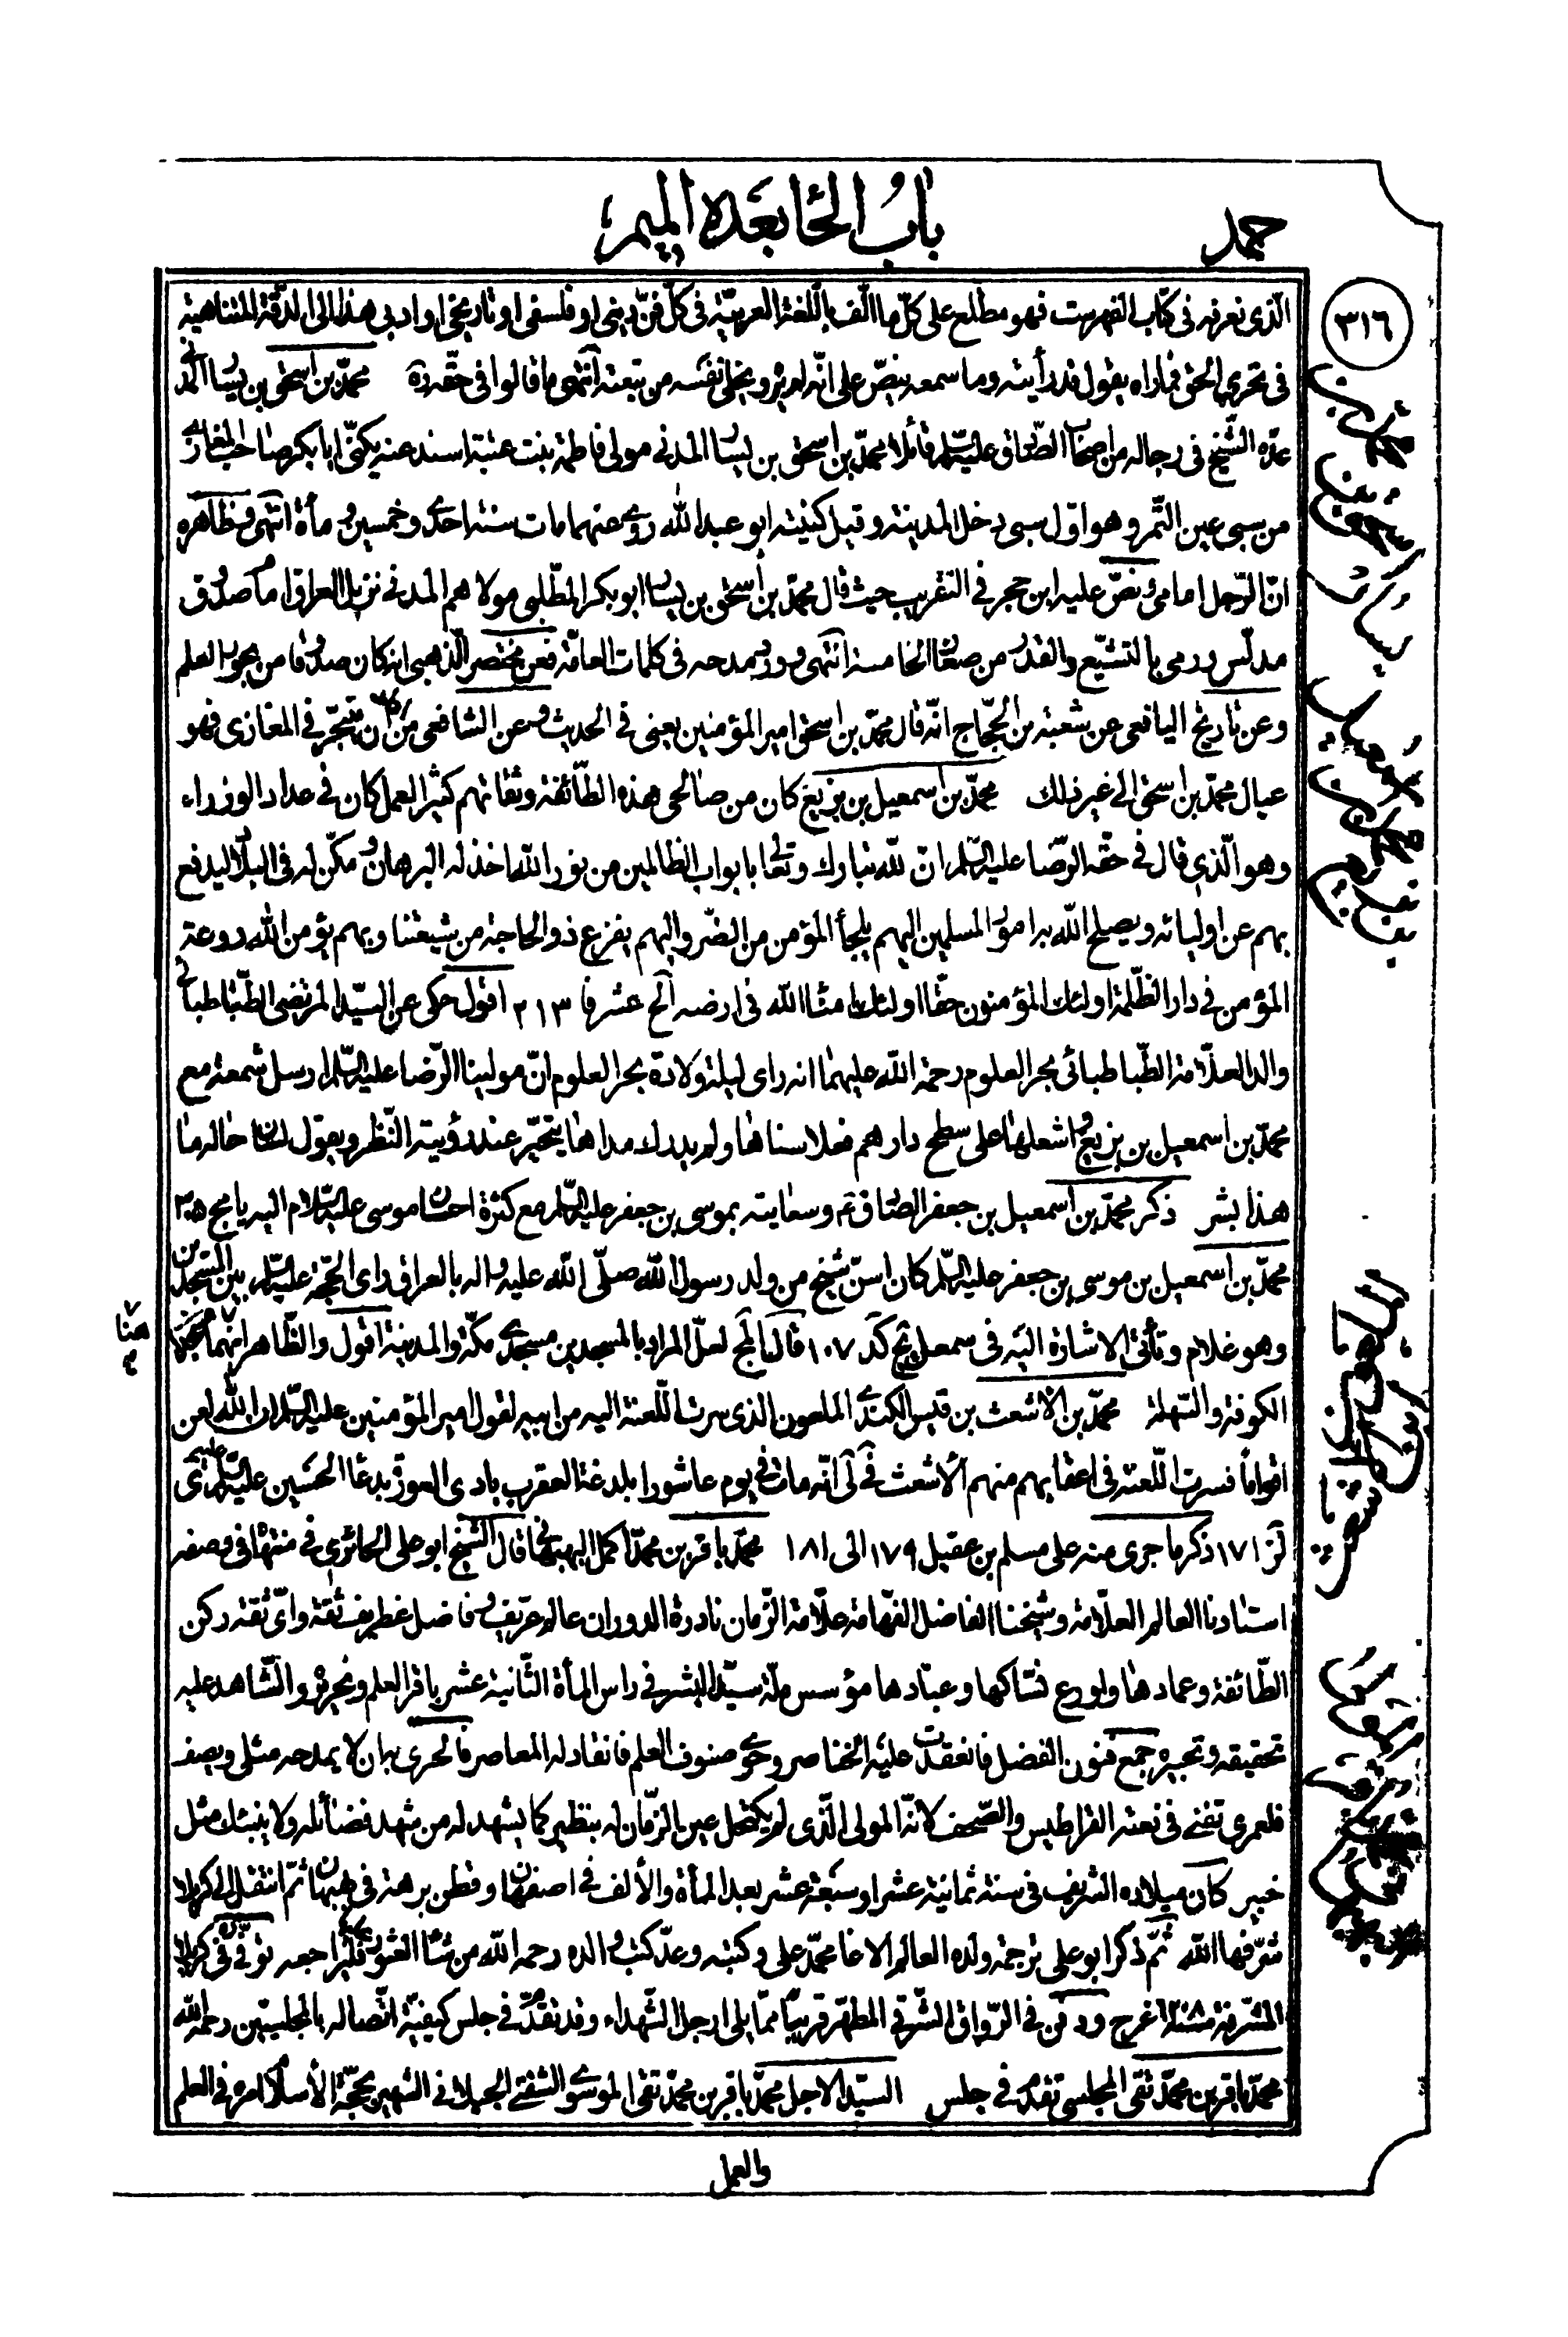 حمد
باب الحاء بعده الميم
٣١٦
الّذى نعرفه فى كتاب الفهرست فهو مطلع على كلّ ما الّف باللّغة العربيّة فى كلّ فنّ دينى او فلسفى او تاريخى او ادبى هذا الى الدقّة المتناهية
فى تحرى الحق فما راه يقول قد رأيته وما سمعه ينصّ على انّه لم يره ويخلى نفسه من تبعته انتهى ما قالوا فى حقّه ره محمّد بن اسحق بن يسار المدنى
عدّه الشّيخ فى رجاله من اصحاب الصّادق عليه السّلم قائلا محمّد بن اسحق بن يسار المدنى مولى فاطمة بنت عتبة اسند عنه يكنّى ابا بكر صاحب المغازى
من سبى عين التّمر وهو اوّل سبى دخل المدينة وقيل كنيته ابو عبد الله روى عنهما مات سنة احدى وخمسين و مأة انتهى وظاهره
انّ الرّجل امامى ونصّ عليه ابن حجر فى التقريب حيث قال محمّد بن اسحق بن يسار ابو بكر المطّلبى مولاهم المدنى نزيل العراق امام صدوق
مدلّس ورمى بالتشيّع والقدر من صغار الخامسة انتهى وورد مدحه فى كلمات العامّة فعن مختصر الّذهبى انه كان صدوقا من بحور العلم
وعن تاريخ اليافعى عن شعبة بن الحجّاج انّه قال محمّد بن اسحق امير المؤمنين يعنى فى الحديث وعن الشافعى من اراد ان يتبحّر فى المغازى فهو
عيال محمّد بن اسحق الى غير ذلك محمّد بن اسمعيل بن بزيع كان من صالحى هذه الطّائفة وثقاتهم كثير العمل كان فى عداد الوزراء
وهو الّذى قال فى حقّه الرّضا عليه السّلم ان لله تبارك وتعالى بابواب الظالمين من نور الله اخذ له البرهان ومكّن له فى البلاد ليدفع
بهم عن اوليائه ويصلح الله به امور المسلمين اليهم يلجأ المؤمن من الضّر واليهم يفزع ذو الحاجة من شيعتنا وبهم يؤمن الله روعة
المؤمن فى دار الظّلمة اولئك المؤمنون حقّا اولئك امناء الله فى ارضه الخ عشر فا ٢١٣ اقول حكى عن السيّد المرتضى الطّباطبائى
والد العلّامة الطّباطبائى بحر العلوم رحمة الله عليهما انه راى ليلة ولادة بحر العلوم انّ مولينا الرّضا عليه السّلم ارسل شمعة مع
محمّد بن اسمعيل بن بزيع واشعلها على سطح دارهم فعلا سناها ولم يدرك مداها يتحيّر عند رؤيته النّظر ويقول لسان حاله ما
هذا بشر ذكر محمّد بن اسمعيل بن جعفر الصّادق ع وسعايته بموسى بن جعفر عليه السّلم مع كثرة احسان موسى عليه السّلام اليه يا مج ٣٠٥
محمّد بن اسمعيل بن موسى بن جعفر عليه السّلم كان اسنّ شيخ من ولد رسول الله صلّى الله عليه واله بالعراق راى الحجّة عليه السّلم بين المسجدين
وهو غلام وتأتى الاشارة اليه فى سمعل يج كد ١٠٧ قال المج لعلّ المراد بالمسجدين مسجدى مكّة والمدينة اقول والظّاهر انّهما مسجدا
هنا م
الكوفة والسّهلة محمّد بن الاشعث بن قيس الكندى الملعون الذى سرت اللّعنة اليه من ابيه لقول امير المؤمنين عليه السّلم ان الله لعن
اقواما فسرت اللّعنة فى اعقابهم منهم الأشعث فى لى انّه مات فى يوم عاشورا بلدغة العقرب بادى العورة بدعاء الحسين عليه السّلم
لز ١٧١ ذكر ما جرى منه على مسلم بن عقيل ١٧٩ الى ١٨١ محمّد باقر بن محمّد اكمل البهبهانى قال الشّيخ ابو على الحائرى فى منتهاه فى وصفه
استادنا العالم العلّامة وشيخنا الفاضل الفهّامة علّامة الزّمان نادرة الدوران عالم عريف وفاضل غطريف ثقة واىّ ثقة ركن
الطّائفة وعمادها واورع نسّاكها وعبّادها مؤسس ملّة سيّد البشر فى راس المأة الثّانية عشر باقر العلم ونحريره والشّاهد عليه
تحقيقه وتحبيره جمع فنون الفضل فانعقدت عليه الخناصر وحوى صنوف العلم فانقاد له المعاصر فالحرى به ان لا يمدحه مثلى ويصف
فلعمرى تفنى فى نعته القراطيس والصّحف لانّه المولى الّذى لم يكتحل عين الزّمان له بنظير كما يشهد له من شهد فضائله ولا ينبئك مثل
خبير كان ميلاده الشريف فى سنة ثمانية عشر او سبعة عشر بعد المأة والألف فى اصفهان وقطن برهة فى بهبهان ثمّ انتقل الى كربلا
شرّفها الله ثمّ ذكر ابو على ترجمة ولده العالم الاغا محمّد على وكتبه وعدّ كتب والده رحمه الله من شاء العثور عليه فليراجعه توفى ره فى كربلا
المشرفة ودفن فى الرّواق الشّرقى المطهّر قريبا ممّا يلى ارجل الشّهداء وقد تقدّم فى جلس كيفيّة اتّصاله بالمجلسيّين رحمه الله
محمّد باقر بن محمّد تقى المجلسى تقدّم فى جلس السيّد الاجل محمّد باقر بن محمّد تقى الموسوى الشفتى الجيلانى الشهير بحجّة الأسلام امره فى العلم
والعمل